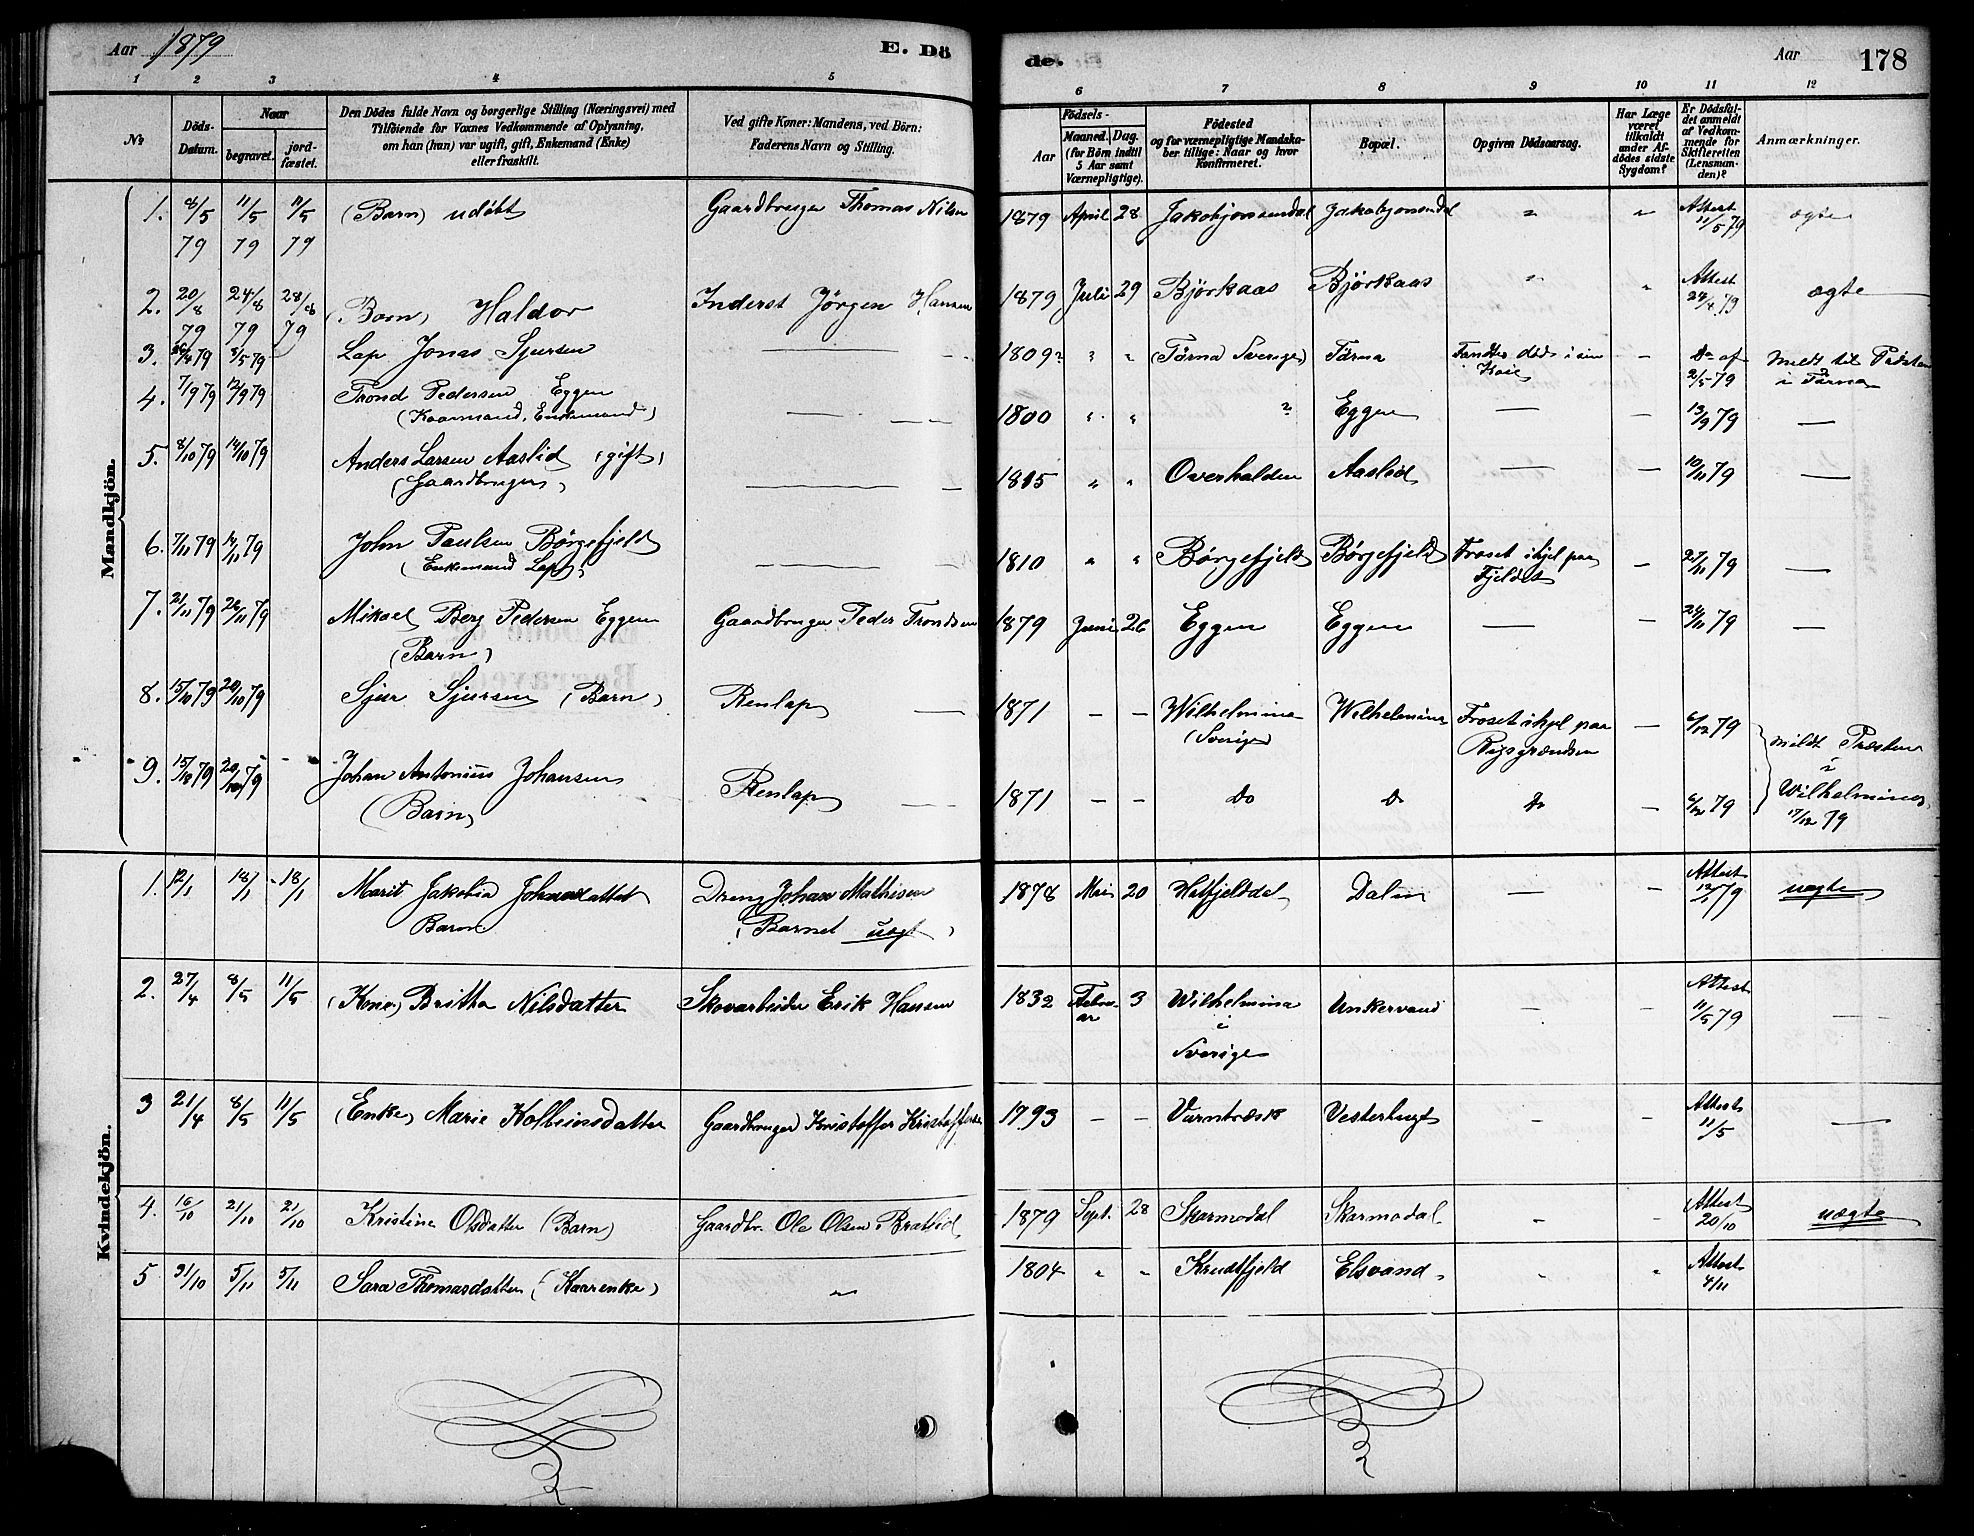 Aar 1879 E. Dö
de. Aar 178
1 2 3 4 5 6 7 8 9 10 11 12
№
Döds-Datum.
Naar
begravet.
jord-fæstet.
Den Dödes fulde Navn og borgerlige Stilling (Næringsvei) med
Tilföiende for Voxnes Vedkommende af Oplysning,
om han (hun) var ugift, gift, Enkemand (Enke)
eller fraskilt.
Ved gifte Koner: Mandens, ved Börn:
Faderens Navn og Stilling.
Födsels-
Aar
Maaned. Dag.
(for Börn indtil
5 Aar samt
Værnepligtige).
Födested
og for værnepligtige Mandska-
ber tillige: Naar og hvor
konfirmeret.
Bopæl.
Opgiven Dödsaarsag.
Har Læge
været
tilkaldt
under Af-
dödes sidste
Sygdom?
Er Dödsfal-
det anmeldt
af Vedkom-
mende for
Skifteretten
(Lensman-
den)?
Anmærkninger.
Mandkjön.
1. 8/5 79 11/5 79 11/5 79 (Barn) udöbt Gaardbruger Thomas Nilsen 1879 April 28 Jakobjonsendal Jakobjonsendal " " Attest 11/5 79 ægte
2. 20/8 79 24/8 79 28/8 79 (Barn) Haldor Inderst Jörgen Hansen 1879 Juli 29 Björkaas Björkaas " " Attest 79 ægte
3. 79 79 Lap Jonas Sjursen — 1809? " " (Tärna Sverige) Tärna Fandtes död i sin Koie — Do af 2/5 79 Meldt til Præsten i Tärna
4. 7/9 79 12/9 79 Trond Pedersen Eggen (Kaarmand, Enkemand) — 1800 " " ? Eggen — — 13/9 79 —
5. 8/10 79 14/10 79 Anders Larsen Aaslid (gift) (Gaardbruger) — 1815 " " Overhalden Aaslid — — 10/11 79 —
6. 7/11 79 14/11 79 John Paulsen Börgefjeld (Enkemand Lap) — 1810 " " Börgefjeld Börgefjeld Froset ihjel paa Fjeldet — 27/11 79 —
7. 21/11 79 79 Mikael Berg Pedersen Eggen (Barn) Gaardbruger Peder Trondsen 1879 Juni 26 Eggen Eggen — — 79 —
8. 15/10 79 20/10 79 Sjur Sjursen (Barn) Renlap — 1871 — — Wilhelmina (Sverige) Wilhelmina Froset ihjel paa Rigsgrændsen — 6/12 79
9. 15/10 79 20/10 79 Johan Antonius Johansen (Barn) Renlap — 1871 — — Do Do Do — 6/12 79 meldt Præsten i Wilhelmina 17/12 79
Kvindekjön.
1. 12/1 18/1 18/1 Marit Jakobia Johansdatter Barn Dreng Johan Mathisen (Barnet uægt) 1878 Mai 20 Hatfjelddal Dalen — — Attest 79 uægte
2. 27/4 8/5 11/5 (Kone) Britha Nilsdatter Skovarbeider Erik Hansen 1832 Februar 3 Wilhelmina i Sverige Unkervand — — Attest 11/5 79 —
3 21/4 8/5 11/5 (Enke) Marie Kolbeinsdatter Gaardbruger Kristoffer Kristoffersen 1793 — — Varntræsk Vesterbugt — — Attest 11/5 —
4. 16/10 21/10 21/10 Kristine Olsdatter (Barn) Gaardbr. Ole Olsen Bratlid 1879 Sept. 28 Skarmodal Skarmodal — — Attest 20/10 uægte
5 31/10 5/11 5/11 Sara Thomasdatter (Kaarenke) " 1804 " " Krudtfjeld Elsvand " " Attest 4/11